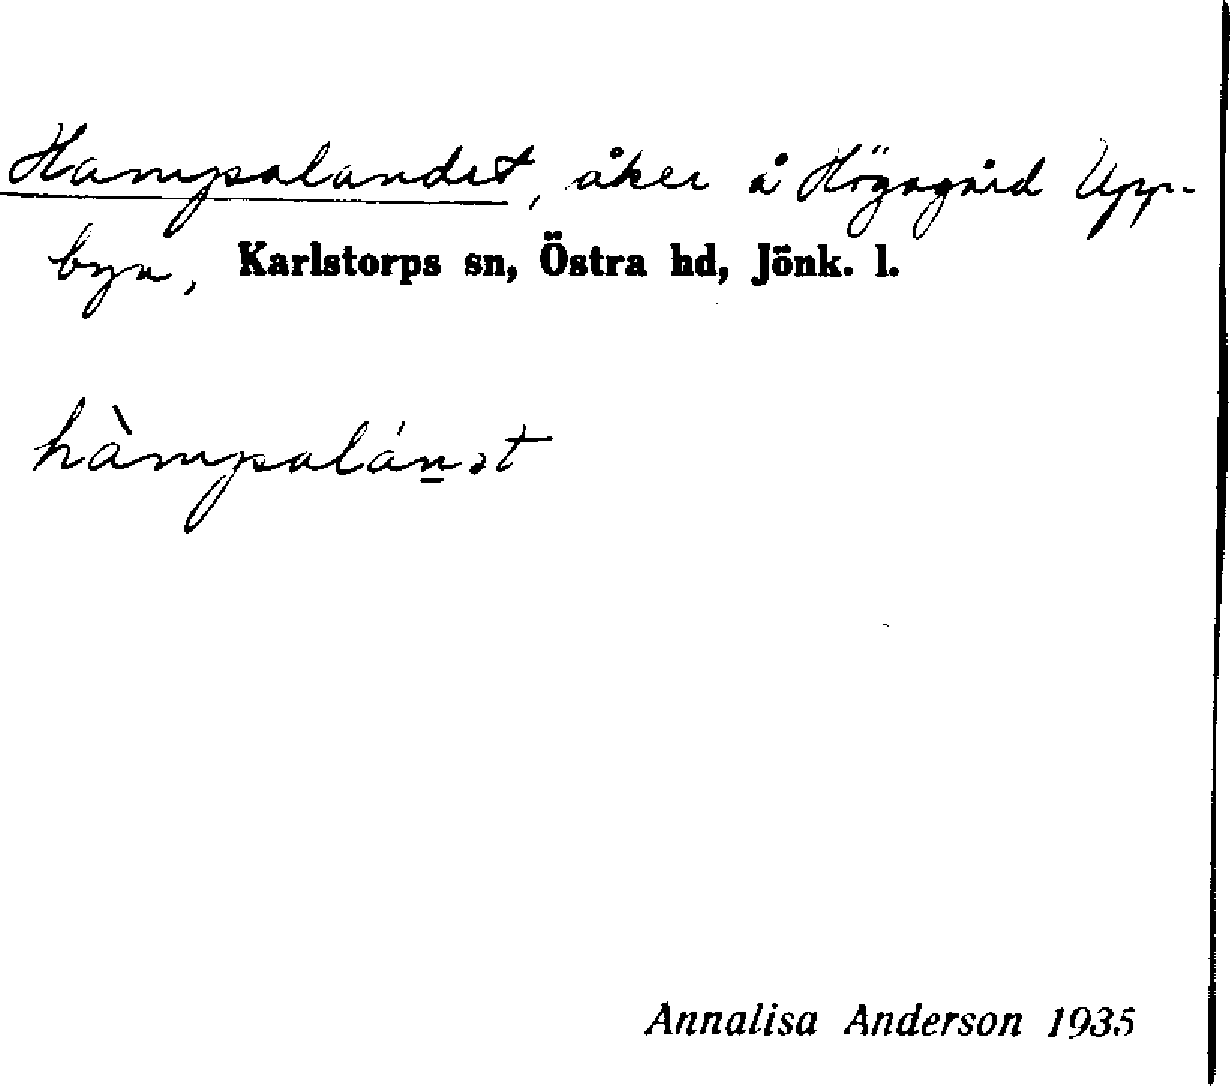 Hampalandet, åker å Högagård Upp-
byn, Karlstorps sn, Östra hd, Jönk. l.
hàmpalán̲ət
Annalisa Anderson 1935